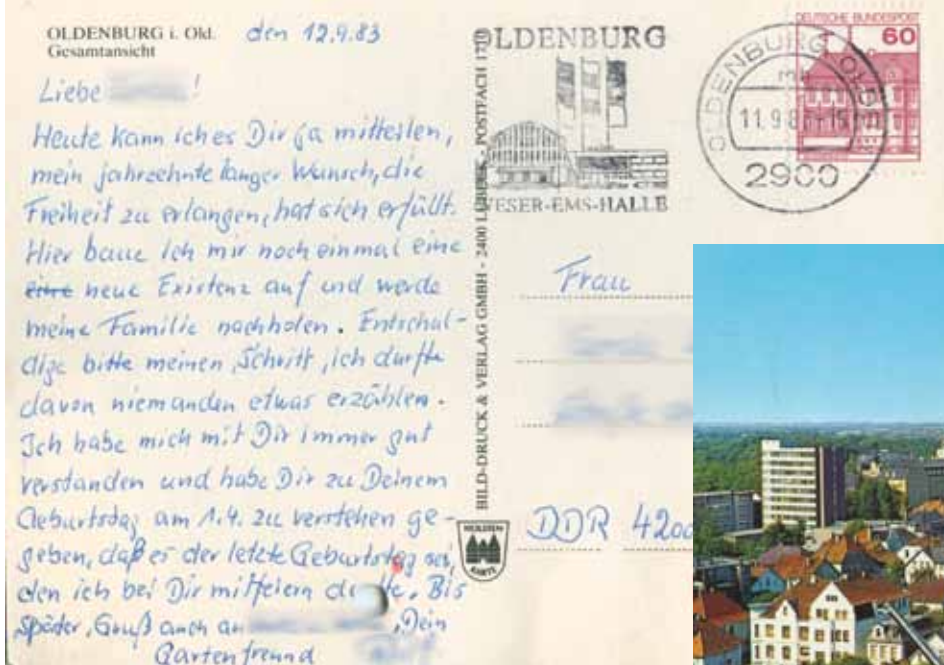 OLDENBURG i. Old.
Gesamtansicht
den 12.9.83
Liebe !
Heute kann ich es Dir ja mitteilen,
mein jahrzehnte langer Wunsch, die
Freiheit zu erlangen, hat sich erfüllt.
Hier baue ich mir noch einmal eine
eine neue Existenz auf und werde
meine Familie nachholen. Entschul-
dige bitte meinen Schritt, ich durfte
davon niemanden etwas erzählen.
Ich habe mich mit Dir immer gut
verstanden und habe Dir zu Deinem
Geburtstag am 1.4. zu verstehen ge-
geben, daß es der letzte Geburtstag sei,
den ich bei Dir mitfeiern Bis
später, Gruß auch an , Dein
Gartenfreund
BILD-DRUCK & VERLAG GMBH - 2400 LÜBECK - POSTFACH
HOLSTEN
KARTE
OLDENBURG
WESER-EMS-HALLE
DEUTSCHE BUNDESPOST
60
OLDENBURG, OLDB
11.9.8
2900
Frau
DDR 4200